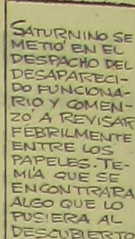 SATURNINO SE
METIÓ EN EL
DESPACHO DEL
DESAPARECI-
DO FUNCIONA-
RIO Y COMEN-
ZÓ A REVISAR
FEBRILMENTE
ENTRE LOS
PAPELES. TE-
MÍA QUE SE
ENCONTRARA
ALGO QUE LO
PUSIERA AL
DESCUBIERTO